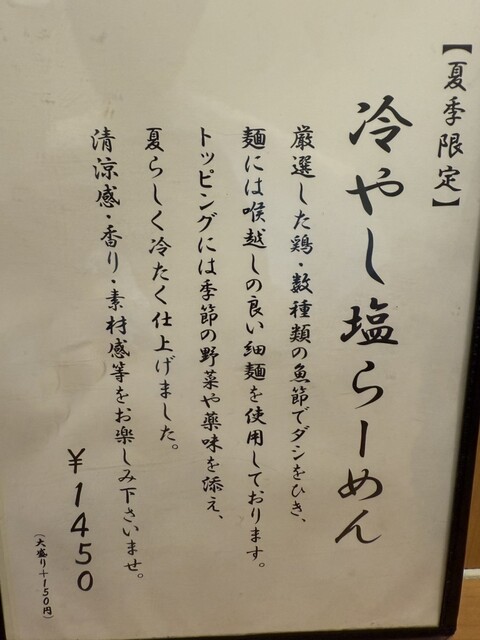 【夏季限定】
冷やし塩らーめん
厳選した鶏・数種類の魚節でダシをひき、
麺には喉越しの良い細麺を使用しております。
トッピングには季節の野菜や薬味を添え、
夏らしく冷たく仕上げました。
清涼感・香り・素材感等をお楽しみ下さいませ。
¥1450
(大盛り+150円)